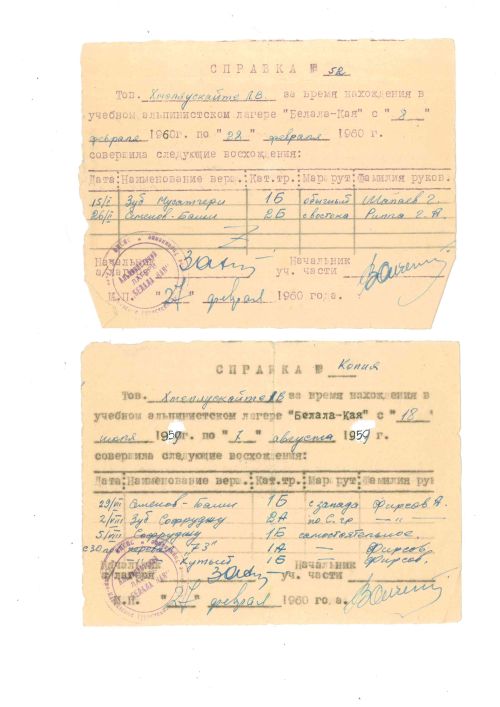 СПРАВКА № 52
Тов. Хмелускайте Л.В. за время нахождения в
учебном альпинистском лагере "Белала-Кая" с "8"
февраля 1960г. по "28" февраля 1960 г.
совершила следующие восхождения:
Дата: Наименование верш. Кат.тр. Маршрут: Фамилия руков.
15/II Зуб Мусатчери 1Б обычный Шапаев Г.
26/II Семенов-Баши 2Б с востока
Начальник Начальник
а/лагеря уч. части
М.П. "27" февраля 1960 года.
СПРАВКА № Копия
Тов. Хмелускайте ЛВ за время нахождения в
учебном альпинистском лагере "Белала-Кая" с "18"
июля 1959г. по "7" августа 1959 г.
совершила следующие восхождения:
Дата: Наименование верш. Кат.тр. Маршрут: Фамилия рук
29/VII Семенов-Баши 1Б с запада Фирсов А.
2/VIII Зуб Софруджу 2А по С. гр. —"—
5/VIII Софруджу 1Б самостоятельное.
перевал "73" 1А — Фирсов,
Кутый 1Б Фирсов,
Начальник Начальник
а/лагеря уч. части
М.П. "27" февраля 1960 года.